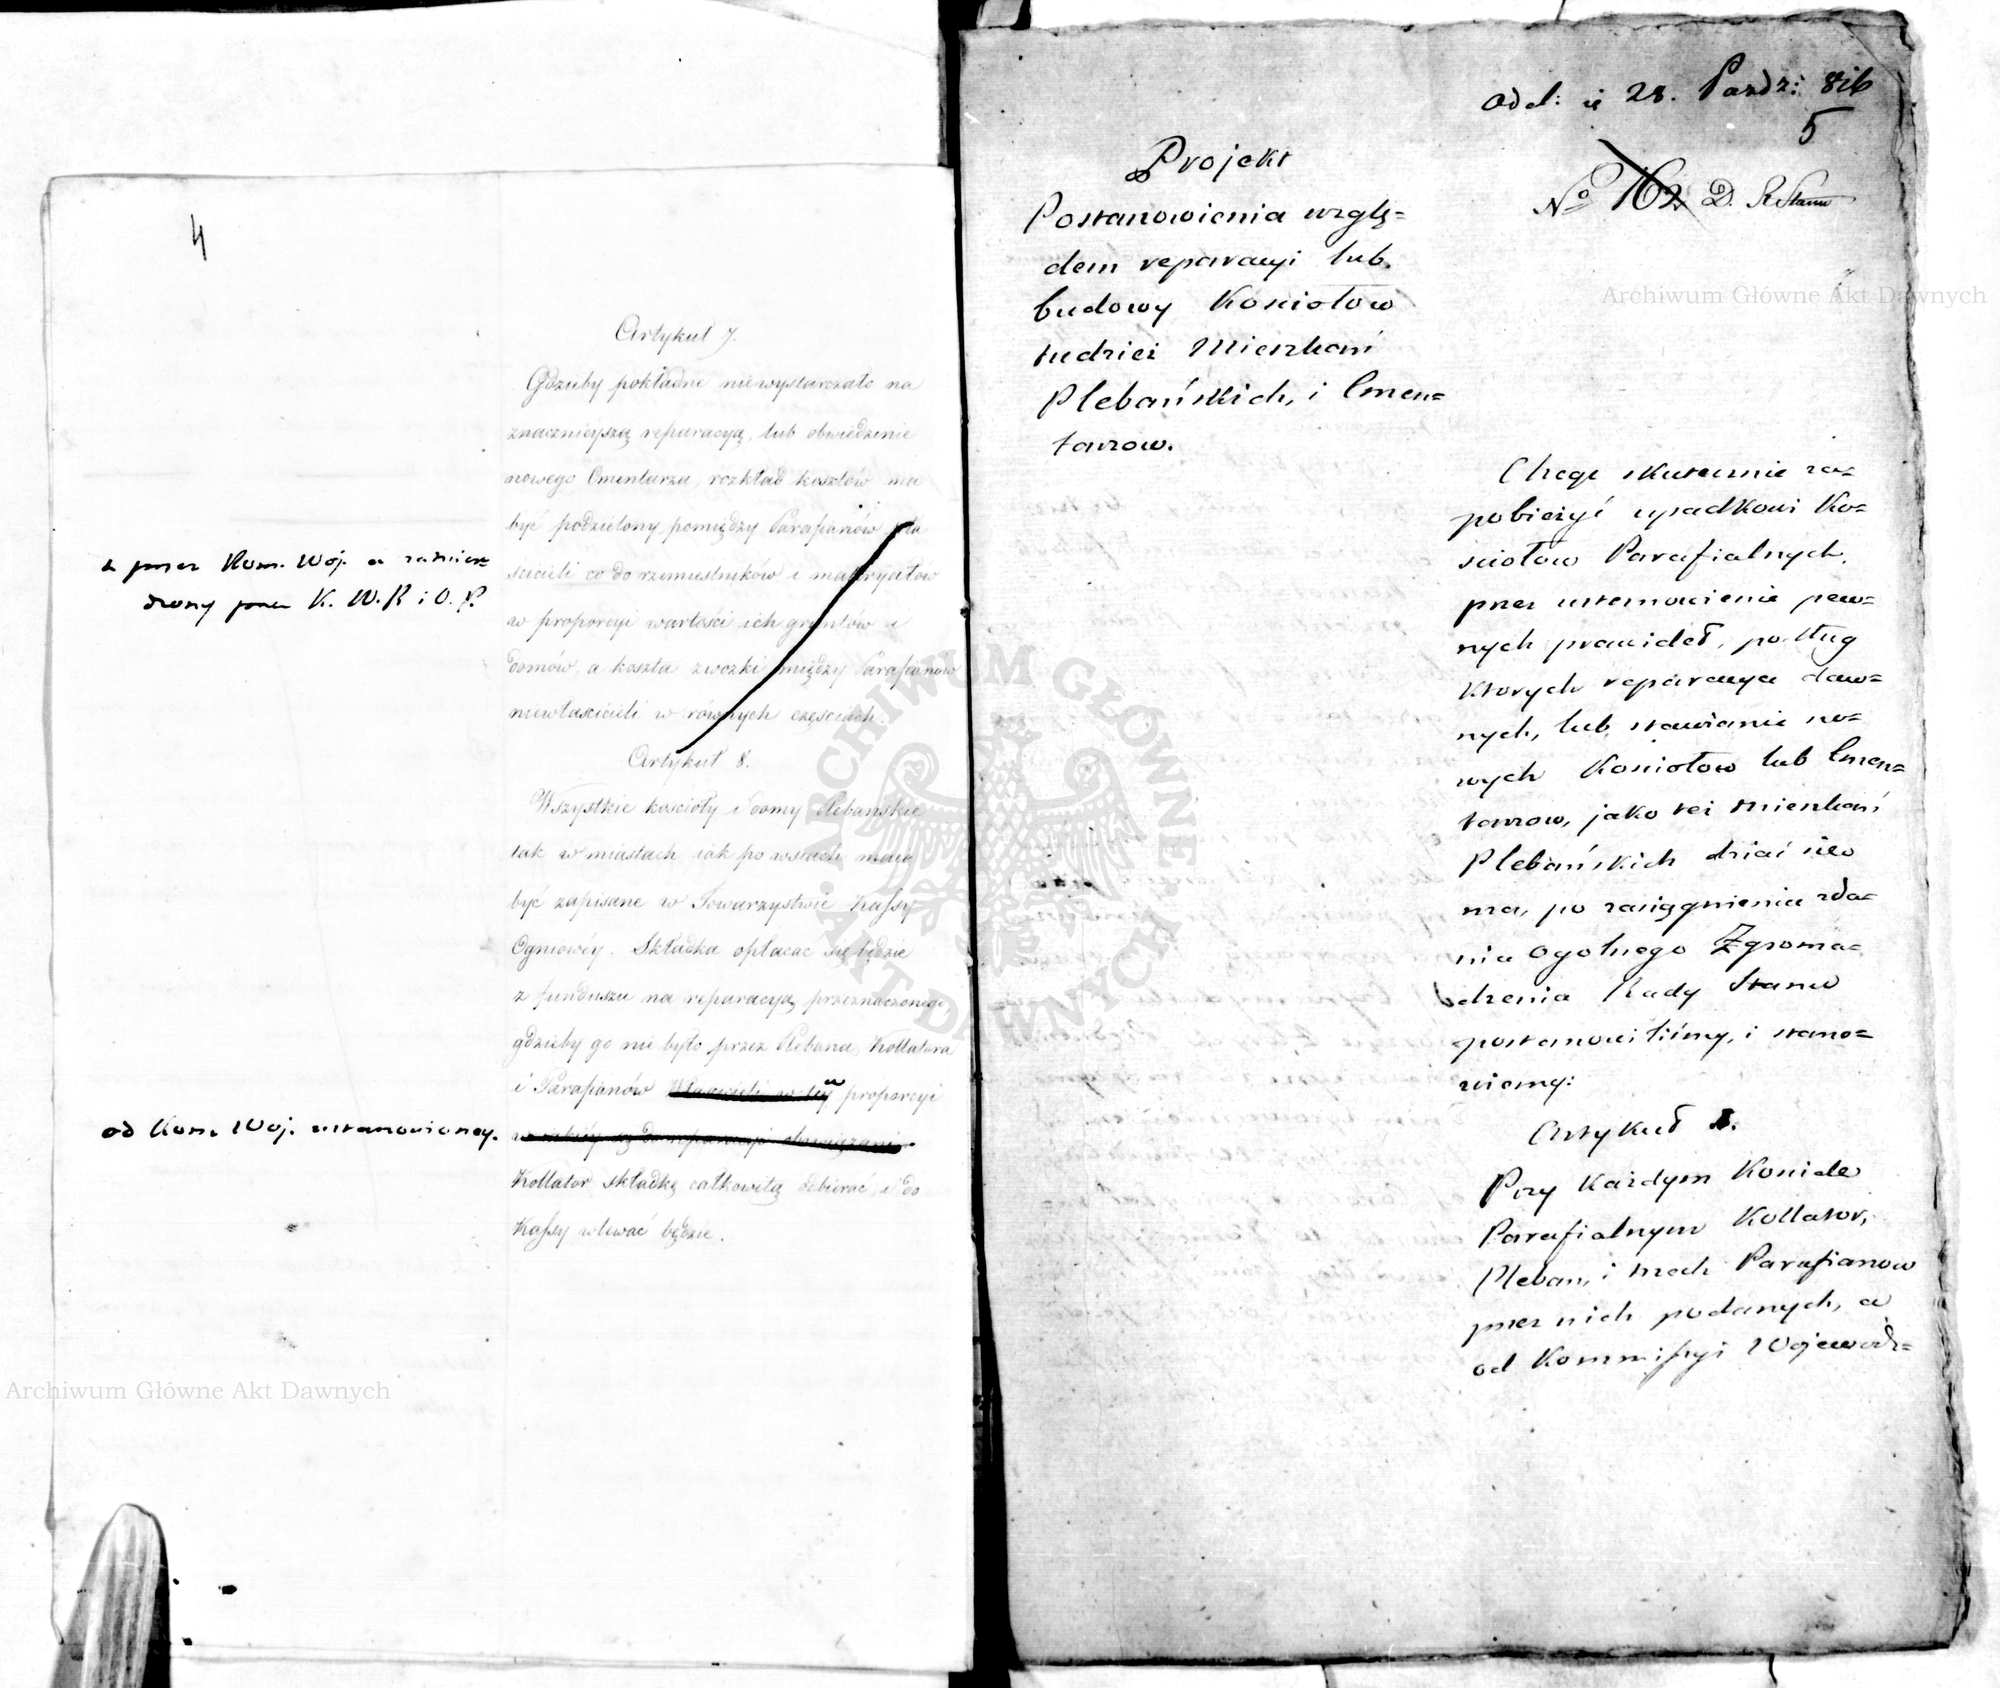 4
Artykuł 7.
Gdzieby pokładne niewystarczało na
znacznieyszą reparacyą, lub obwiedzenie
nowego Cmentarza, rozkład kosztów ma
być podzielony pomiędzy Parafianów
ścicieli co do rzemieślników i materyałów
w proporcyi wartości ich gruntów i
domów, a koszta zwózki między Parafianów
niewłaścicieli w równych częściach.
przez Kom. Woj. a zatwier=
dzony przez K. W. R i O. P.
Artykuł 8.
Wszystkie kościoły i domy Plebańskie
tak w miastach iak po wsiach maią
być zapisane w Towarzystwie Kassy
Ogniowéy. Składka opłacać się będzie
z funduszu na reparacyą przeznaczonego,
gdzieby go nie było przez Plebana, Kollatora
i Parafianów właścicieli w téy w proporcyi
w iakiéy są do reparacyi obowiązani.
od Kom. Woj. ustanowioney.
Kollator składkę całkowitą odbierać, i do
Kassy wlewać będzie.
Odd: d 28. Pazdz: 816
5
No 162 D. R Stanu
Projekt
Postanowienia wzglę=
dem reparacyi lub
budowy Kosciołow
tudzież Mieszkań
Plebańskich, i Cmen=
tarzow.
Chcąc skutecznie za=
pobieżyć upadkowi Ko=
sciołów Parafialnych,
przez ustanowienie pew=
nych prawideł, podług
ktorych reparacya daw=
nych, lub stawianie no=
wych Kosciołow lub Cmen=
tarzow, jako też mieszkań
Plebańskich dziać się
ma, po zasiągnieniu zda=
nia Ogolnego Zgroma=
dzenia Rady Stanu
postanowiliśmy, i stano=
wiemy:
Artykuł 1.
Przy każdym Kościele
Parafialnym Kollator,
Pleban, i trzech Parafianow
przez nich podanych, a
od Kommissyi Wojewodz=
Archiwum Główne Akt Dawnych
Archiwum Główne Akt Dawnych
ARCHIWUM GŁÓWNE AKT DAWNYCH